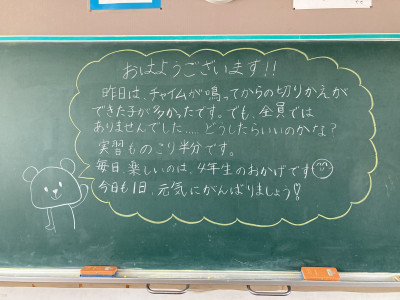 おはようございます!!
昨日は、チャイムが鳴ってからの切りかえが
できた子が多かったです。でも、全員では
ありませんでした.... どうしたらいいのかな?
実習ものこり半分です。
毎日楽しいのは、4年生のおかげです
今日も1日、元気にがんばりましょう!